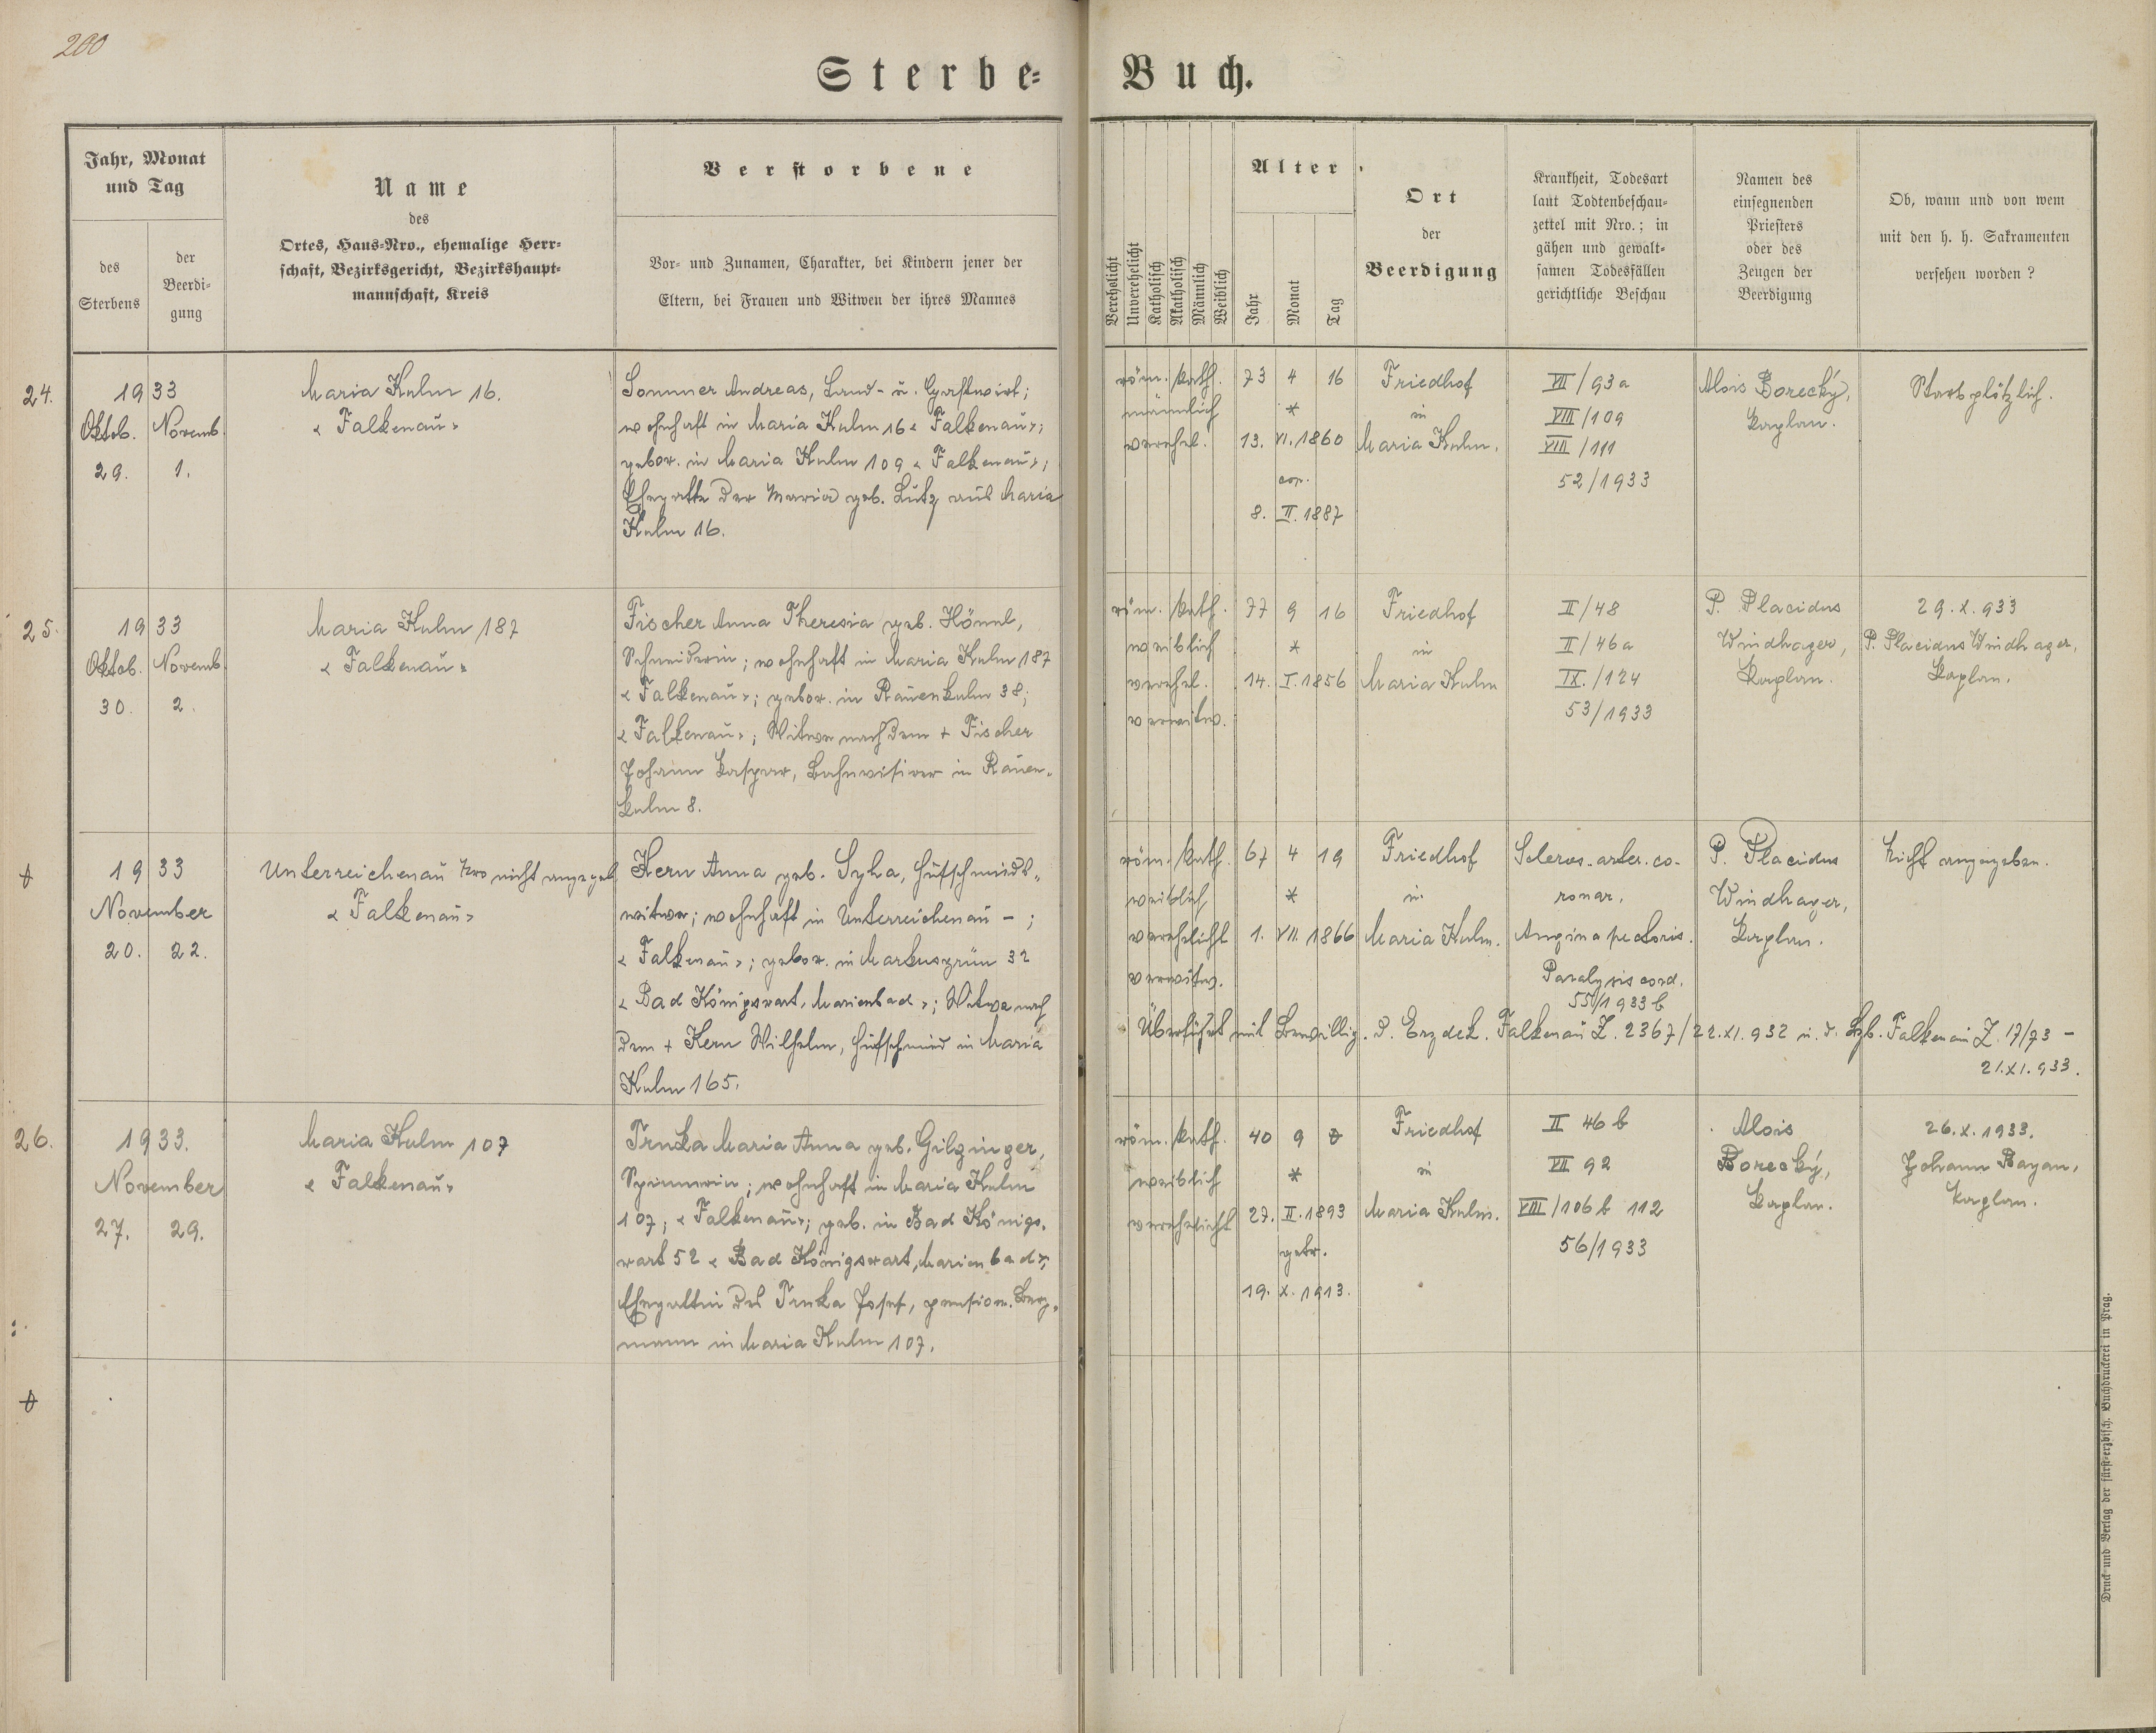 200
Sterbe= Buch.
Jahr, Monat
und Tag
des
Sterbens
der
Beerdi=
gung
Name
des
Ortes, Haus=Nro., ehemalige Herr=
schaft, Bezirksgericht, Bezirkshaupt=
mannschaft, Kreis
Verstorbene
Vor= und Zunamen, Charakter, bei Kindern jener der
Eltern, bei Frauen und Witwen der ihres Mannes
Verehelicht
Unverehelicht
Katholisch
Akatholisch
Männlich
Weiblich
Alter
Jahr
Monat
Tag
Ort
der
Beerdigung
Krankheit, Todesart
laut Todtenbeschau=
zettel mit Nro.; in
gähen und gewalt=
samen Todesfällen
gerichtliche Beschau
Namen des
einsegnenden
Priesters
oder des
Zeugen der
Beerdigung
Ob, wann und von wem
mit den h. h. Sakramenten
versehen worden?
24.
1933
Oktob. Novemb.
29. 1.
Maria Kulm 16.
« Falkenau »
Sommer Andreas, Land- u. Gastwirt;
wohnhaft in Maria Kulm 16 « Falkenau »;
gebor. in Maria Kulm 109 « Falkenau »;
Ehegatte der Maria geb. Lutz aus Maria
Kulm 16.
röm. kath.
männlich
verehel.
73 4 16
*
13. VI. 1860
cop.
8. II. 1887
Friedhof
in
Maria Kulm.
VII/93a
VIII/109
VIII/111
52/1933
Alois Borecký,
Kaplan.
Starb plötzlich.
25.
1933
Oktob. Novemb.
30. 2.
Maria Kulm 187
« Falkenau »
Fischer Anna Theresia geb. Hönnl,
Schneiderin; wohnhaft in Maria Kulm 187
« Falkenau »; gebor. in Rauenkulm 38;
« Falkenau »; Witwe nach dem + Fischer
Johann Kaspar, Bahnvisirer in Rauen-
kulm 8.
röm. kath.
weiblich
verehel.
verwitw.
77 9 16
*
14. I. 1856
Friedhof
in
Maria Kulm
II/48
II/46a
IX./124
53/1933
P. Placidus
Windhager,
Kaplan.
29. X. 933
P. Placidus Windhager,
Kaplan.
1933
November
20. 22.
Unterreichenau Nro nicht angegeb.
« Falkenau »
Kern Anna geb. Syha, Hufschmieds-
witwe; wohnhaft in Unterreichenau - ;
« Falkenau »; gebor. in Markusgrün 32
« Bad Königswart, Marienbad »; Witwe nach
dem + Kern Wilhelm, Hufschmied in Maria
Kulm 165.
röm. kath.
weiblich
verehelicht
verwitw.
67 4 19
*
1. VII. 1866
Friedhof
in
Maria Kulm.
Scleros. arter. co-
ronar.
Angina pectoris.
Paralysis cord.
55/1933 b
P. Placidus
Windhager,
Kaplan.
Nicht angegeben.
Überführt mit Bewillig. d. Erzdek. Falkenau Z. 2367/22.XI.932 u. d. Bzb. Falkenau Z. 17/73 -
21.XI.933.
26.
1933.
November
27. 29.
Maria Kulm 107
« Falkenau »
Trnka Maria Anna geb. Gilzinger,
Spinnerin; wohnhaft in Maria Kulm
107; « Falkenau »; geb. in Bad Königs-
wart 52 « Bad Königswart, Marienbad »;
Ehegattin des Trnka Josef, pension. Berg-
mann in Maria Kulm 107.
röm. kath.
weiblich
verehelicht
40 9 0
*
27. II. 1893
getr.
19. X. 1913.
Friedhof
in
Maria Kulm.
II 46 b
VII 92
VIII/106 b 112
56/1933
Alois
Borecký,
Kaplan.
26. X. 1933.
Johann Bayan,
Kaplan.
Druck und Verlag der fürst=erzbisch. Buchdruckerei in Prag.